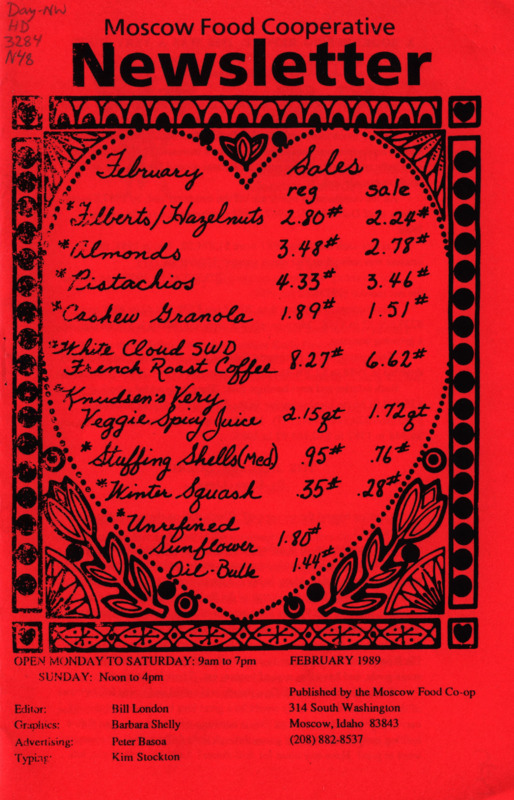 Day-NW
HD
3284
N48
Moscow Food Cooperative
Newsletter
February Sales
reg sale
*Filberts/Hazelnuts 2.80# 2.24#
*Almonds 3.48# 2.78#
*Pistachios 4.33# 3.46#
*Cashew Granola 1.89# 1.51#
*White Cloud SWD
French Roast Coffee 8.27# 6.62#
*Knudsen's Very
Veggie Spicy Juice 2.15qt 1.72qt
*Stuffing Shells(Med) .95# .76#
*Winter Squash .35# .28#
*Unrefined
Sunflower 1.80#
Oil-Bulk 1.44#
OPEN MONDAY TO SATURDAY: 9am to 7pm
SUNDAY: Noon to 4pm
Editor: Bill London
Graphics: Barbara Shelly
Advertising: Peter Basoa
Typing: Kim Stockton
FEBRUARY 1989
Published by the Moscow Food Co-op
314 South Washington
Moscow, Idaho 83843
(208) 882-8537